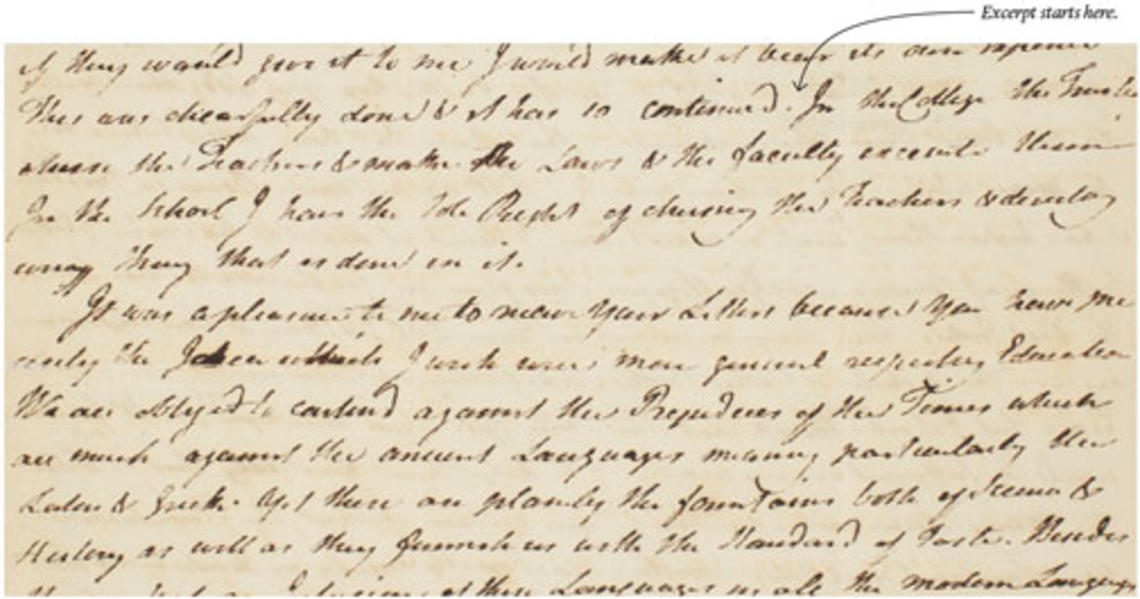 Excerpt starts here.
if they would give it to me I would make it bear its own expence
This was chearfully done & it has so continued. In the College the Trustees
chuse the Teachers & make the Laws & the faculty execute them
In the School I have the Sole Right of chusing the Teachers & directing
every thing that is done in it.
It was a pleasure to me to receive your Letter because you have me
the Ideas which I wish were more general respecting Education
We are obliged to contend against the Prejudices of the Times which
are much against the ancient Languages meaning particularly the
Latin & Greek. Yet these are plainly the fountains both of Science &
History as well as they furnish us with the Standard of Taste. Besides
of these Languages in all the modern Languages